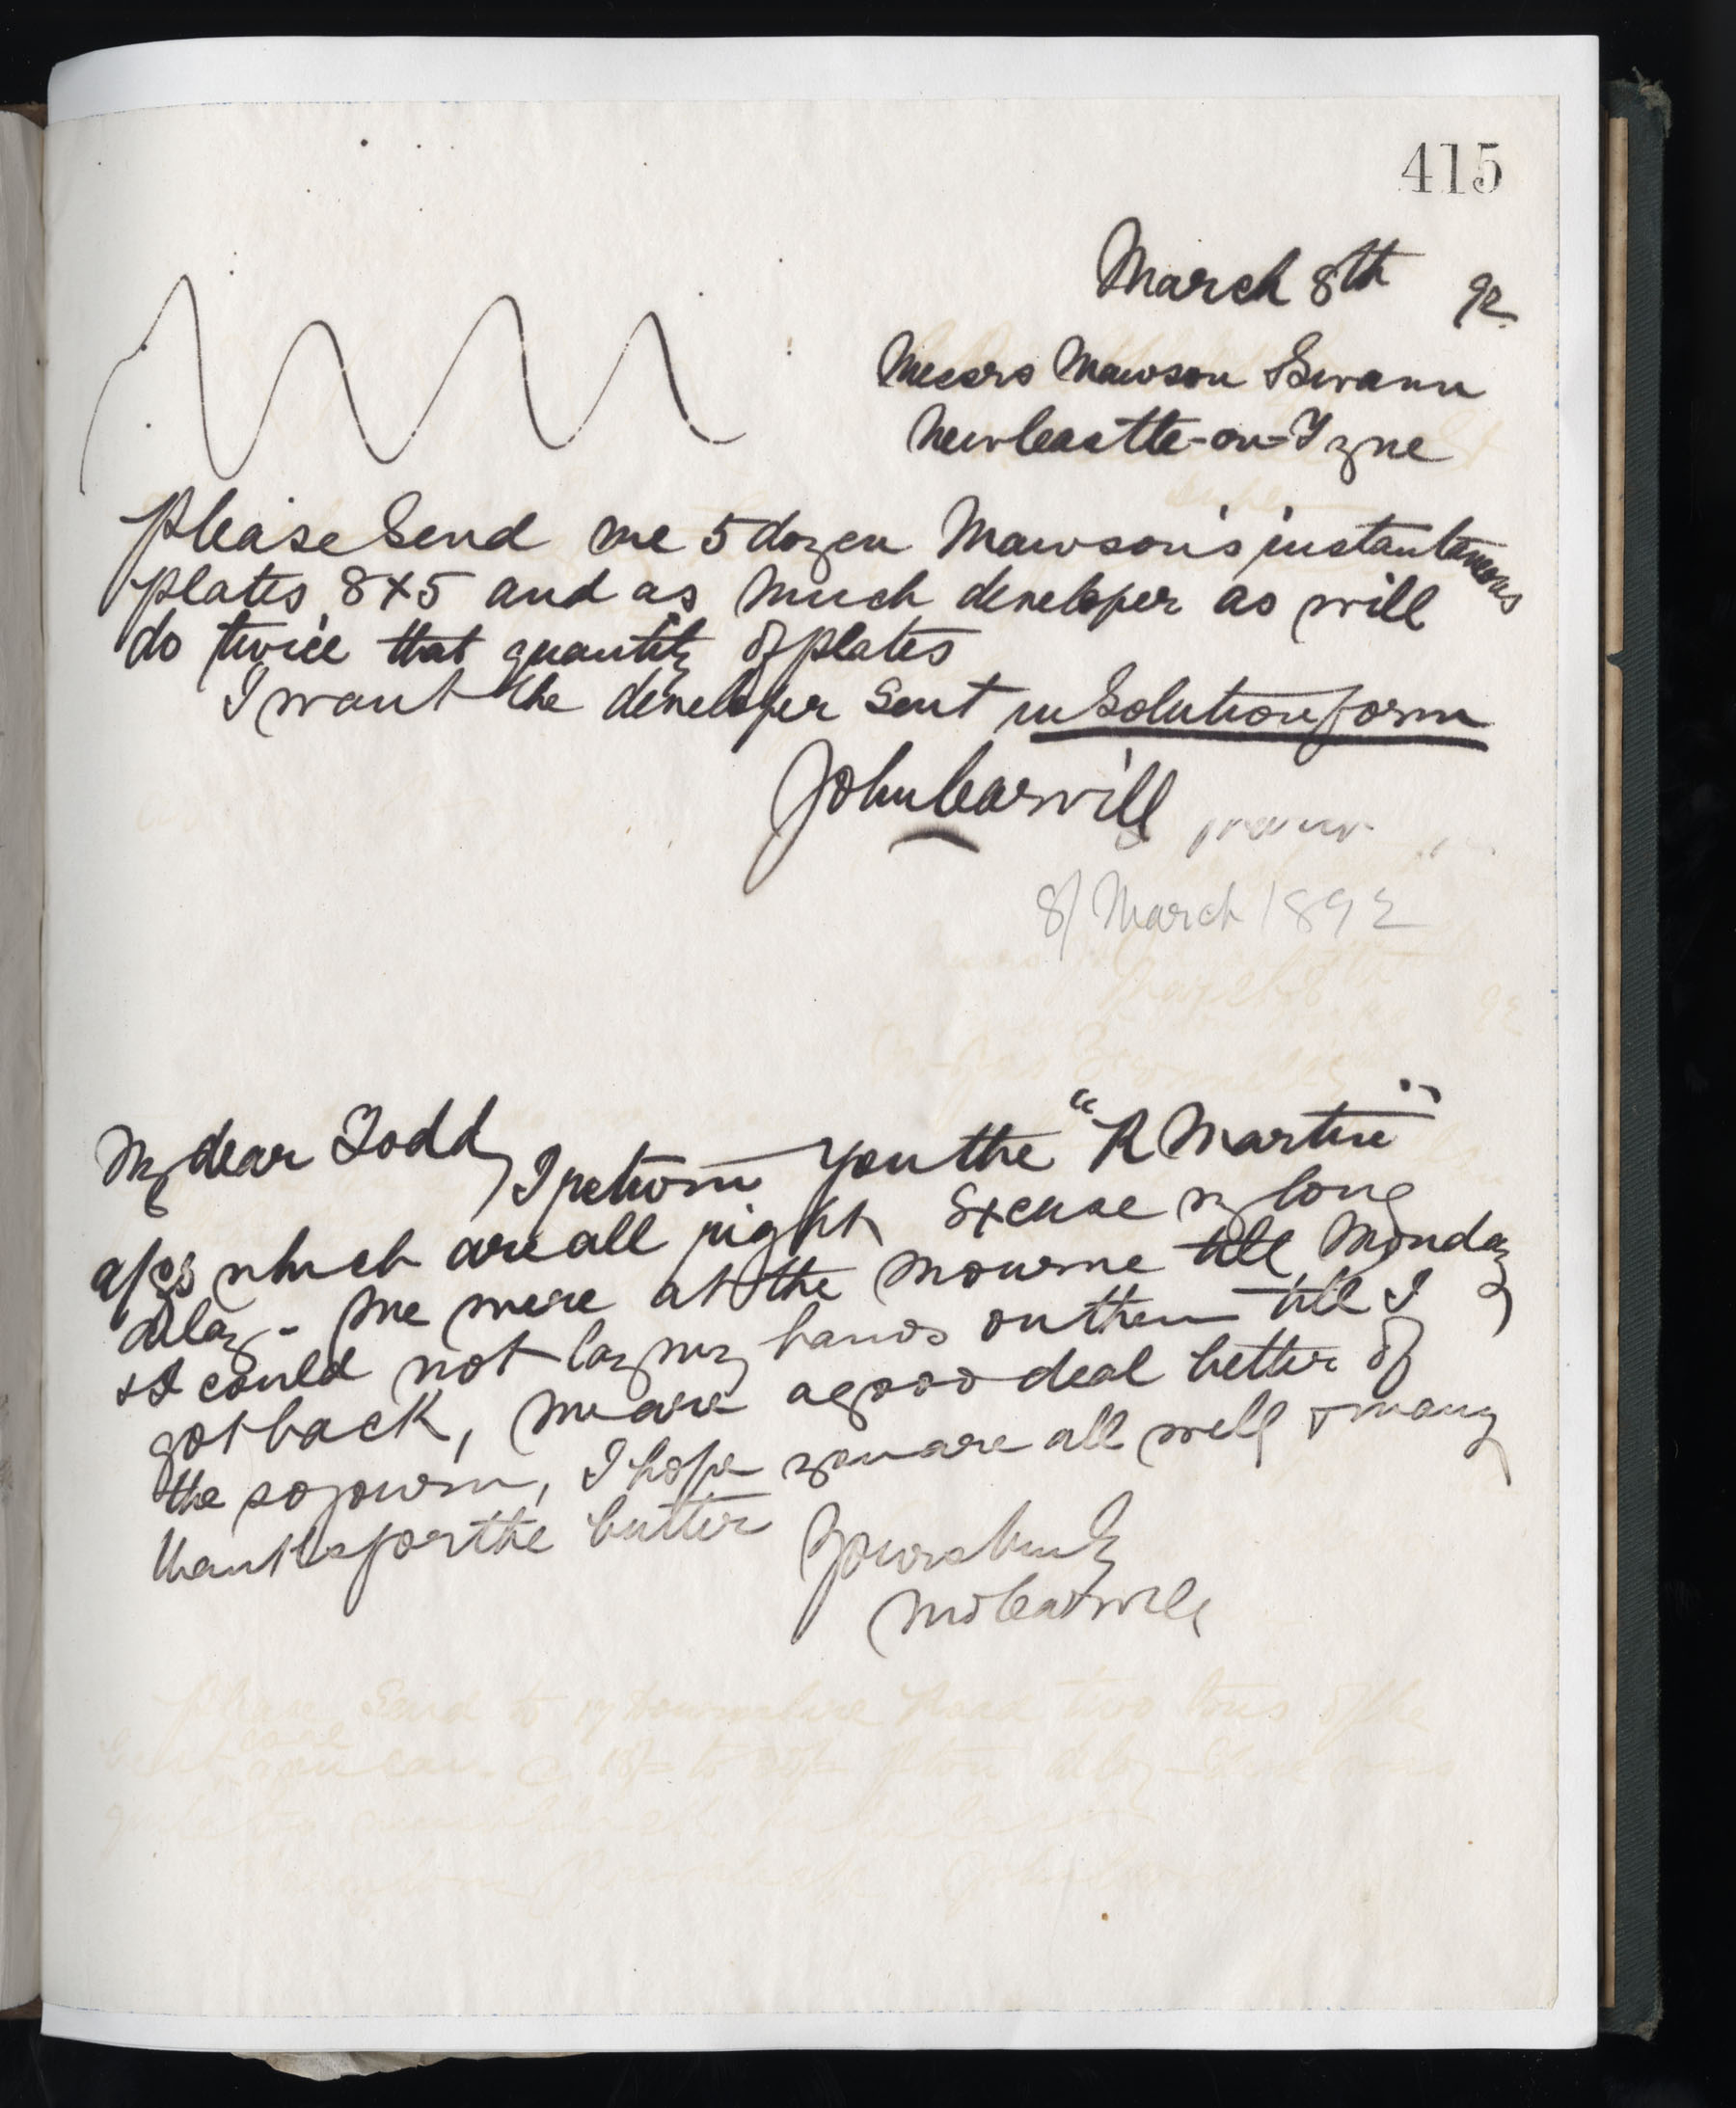 415
March 8th 92
Messrs Mawson & Swann
Newcastle-on-Tyne
Please Send me 5 dozen Mawson's instantaneous
plates 8x5 and as much developer as will
do twice that quantity of plates
I want the developer sent in Solution form
John Carvill
8/ March 1892
My dear Todd, I return you the "R Martin"
a/cs which are all right Excuse my long
delay - We were at the Mourne till Monday
& I could not lay my hands on them till I
got back, we are a good deal better of
the sojourn, I hope you are all well & many
thanks for the butter
Yours truly
Carvill
Please Send to 17 Downshire Road two tons of the